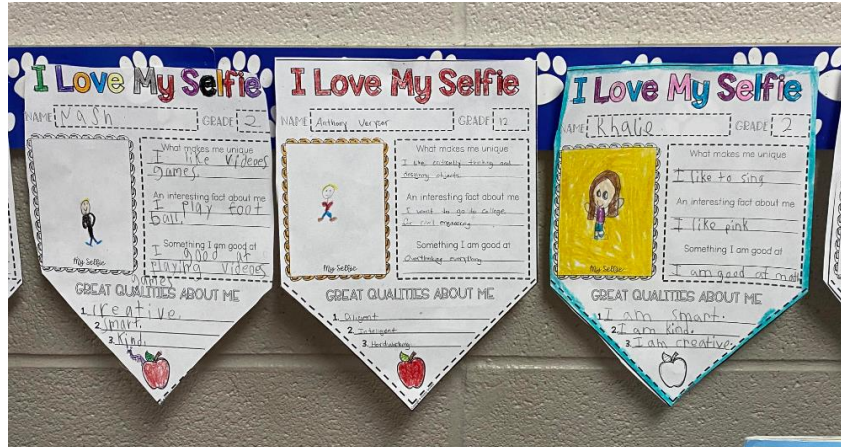 I Love My Selfie
NAME: Nash GRADE: 2
What makes me unique
I like videoes
games.
An interesting fact about me
I play foot
ball.
Something I am good at
I good at
playing videoes
games
My Selfie
GREAT QUALITIES ABOUT ME
1. creative.
2. Smart.
3. Kind.
I Love My Selfie
NAME: Anthony GRADE: 12
What makes me unique
I like critically thinking and
designing objects
An interesting fact about me
I want to go to college
for civil engineering
Something I am good at
Overthinking everything
My Selfie
GREAT QUALITIES ABOUT ME
1. Diligent
2. Intelligent
3. Hardworking
I Love My Selfie
NAME: Khalie GRADE: 2
What makes me unique
I like to sing
An interesting fact about me
I like pink
Something I am good at
I am good at math
My Selfie
GREAT QUALITIES ABOUT ME
1. I am smart.
2. I am kind.
3. I am creative.